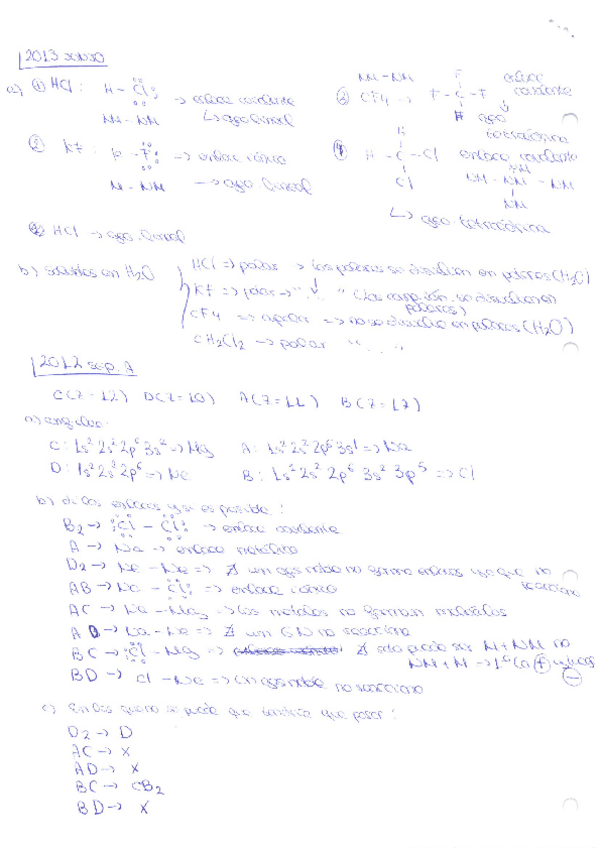 2013
a) ① HCl : H – Cl → enlace covalente
NM – NM ↳ geo. lineal
NM – NM
③ CF4 → F – C – F enlace covalente
F
geo tetraédrica
② KF : K – F → enlace iónico
M – NM → geo. lineal
④ H – C – Cl enlace covalente
Cl
NM – NM – NM
NM
↳ geo. tetraédrica
HCl → geo. lineal
b) solutos en H2O
HCl ⇒ polar → los polares se disuelven en polares (H2O)
KF ⇒ polar → " "
CF4 ⇒ apolar ⇒ no se disuelve en polares (H2O)
CH2Cl2 → polar " "
2012 sep. A
C(Z=12) D(Z=10) A(Z=11) B(Z=17)
C: 1s² 2s² 2p⁶ 3s² ⇒ Mg A: 1s² 2s² 2p⁶ 3s¹ ⇒ Na
D: 1s² 2s² 2p⁶ ⇒ Ne B: 1s² 2s² 2p⁶ 3s² 3p⁵ ⇒ Cl
b) di los enlaces y si es posible :
B2 → Cl – Cl → enlace covalente
A → Na → enlace metálico
D2 → Ne – Ne ⇒ ∄ un gas noble no forma enlaces ya que no reacciona
AB → Na – Cl ⇒ enlace iónico
AC → Na – Mg ⇒ los metales no forman moléculas
AD → Na – Ne ⇒ ∄ un GN no reacciona
BC → Cl – Mg ⇒ ∄ solo puede ser M + NM no
NM + M → 1º (a ⊕ ⊖
BD → Cl – Ne ⇒ Un gas noble no reacciona
c) En los que no se puede que tendría que pasar :
D2 → D
AC → X
AD → X
BC → CB2
BD → X